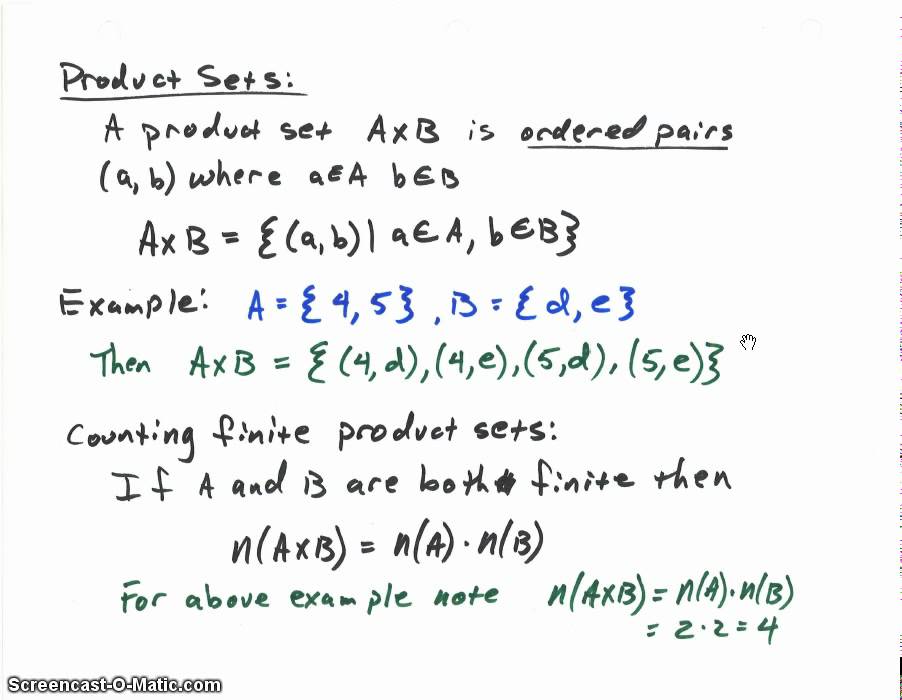 Product Sets:
A product set A×B is ordered pairs
(a, b) where a∈A b∈B
A×B = {(a, b) | a∈A, b∈B}
Example: A = {4, 5}, B = {d, e}
Then A×B = {(4, d), (4, e), (5, d), (5, e)}
Counting finite product sets:
If A and B are both finite then
n(A×B) = n(A) · n(B)
For above example note n(A×B) = n(A) · n(B)
= 2 · 2 = 4
Screencast-O-Matic.com